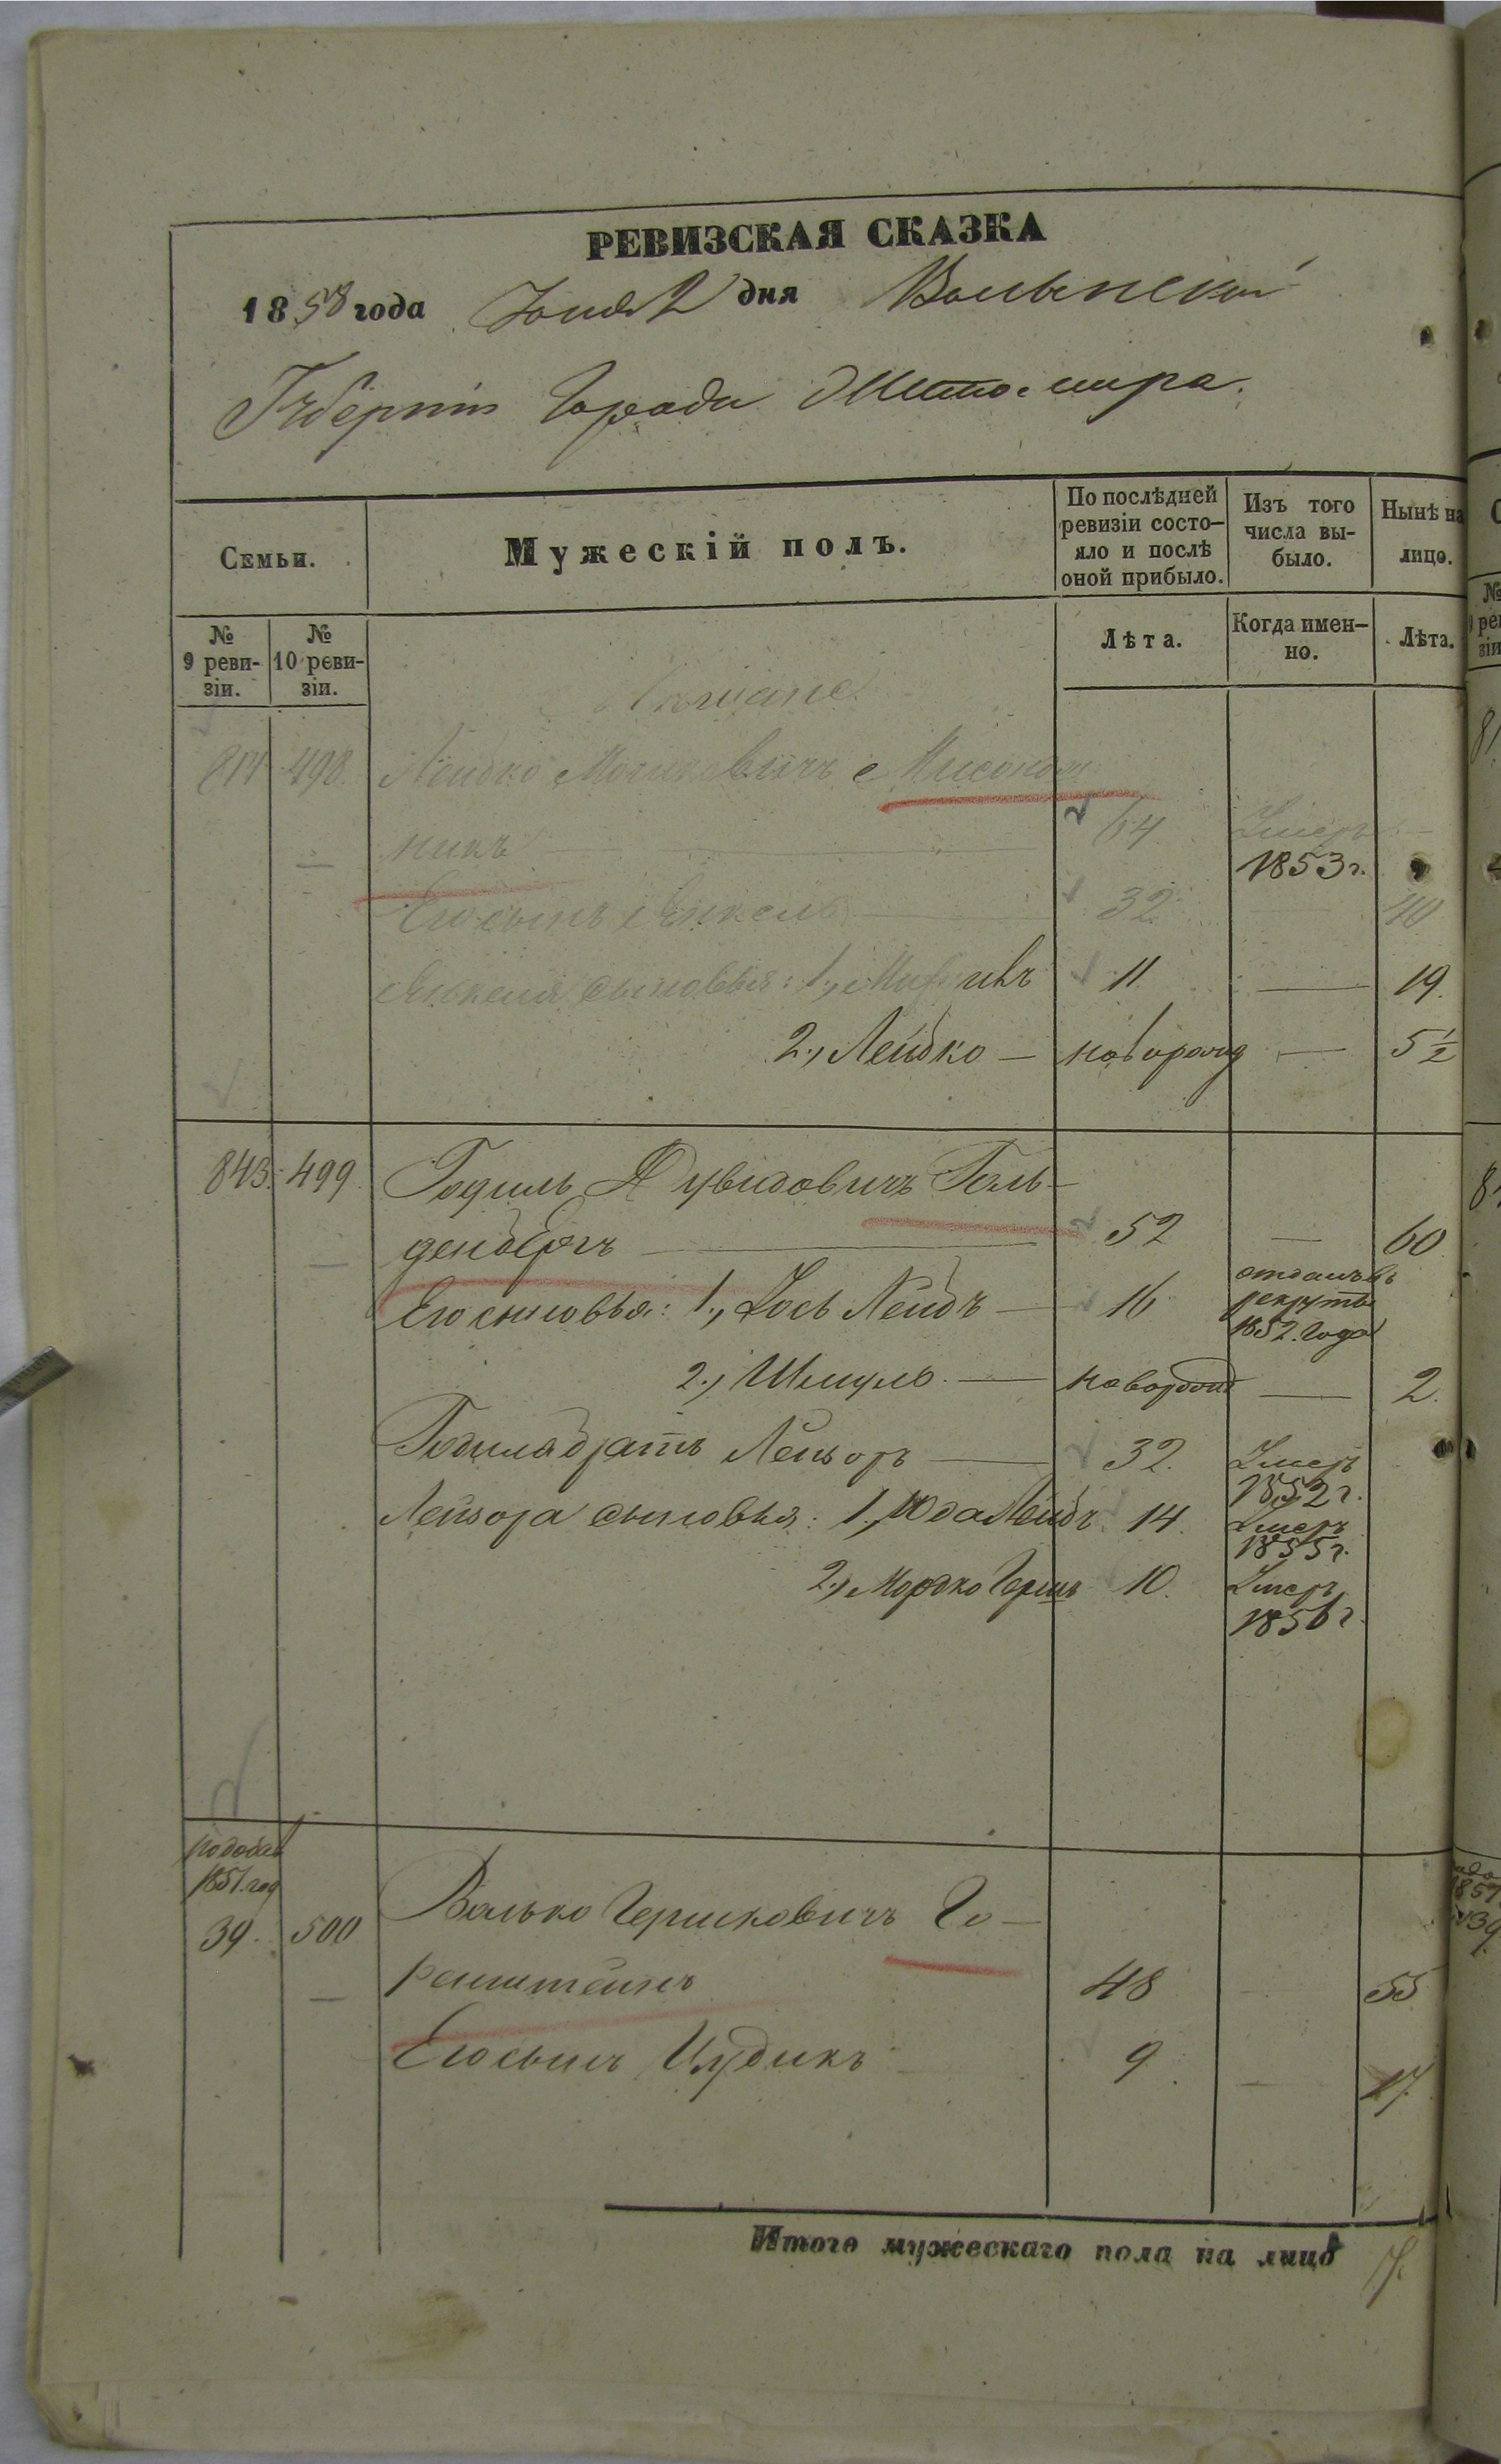 РЕВИЗСКАЯ СКАЗКА
1858 года Іюня 2 дня Волынской
Губерніи Города Житомира.
Семьи.
Мужескій полъ.
По послѣдней ревизіи состо-
яло и послѣ оной прибыло.
Изъ того числа вы-
было.
Нынѣ на лицо.
№ 9 реви-
зіи.
№ 10 реви-
зіи.
Лѣта.
Когда имен-
но.
Лѣта.
498. Лейбко Мошковичъ
никъ 64 Умеръ
1853 г.
Его сынъ Янкель 32 40
Янкеля сыновья: 1., 11 19.
2., Лейбко новорожд 5 1/2
843. 499. Годиль Дувидовичъ Голь-
денбергъ 52 60
Его сыновья: 1., Іось Лейбъ 16 отданъ въ
рекруты
1852. года
2., Шмуль новорожд 2.
Годиля братъ Лейзоръ 32. Умеръ
1852 г.
Лейзора сыновья: 1., Юда Лейбъ 14. Умеръ
1855 г.
2., Мордко Гершъ 10. Умеръ
1856 г.
1851 год
39. 500 Волько Гершковичъ Го-
ранштейнъ 48 55
Его сынъ 9. 17.
Итого мужескаго пола на лицо 7.